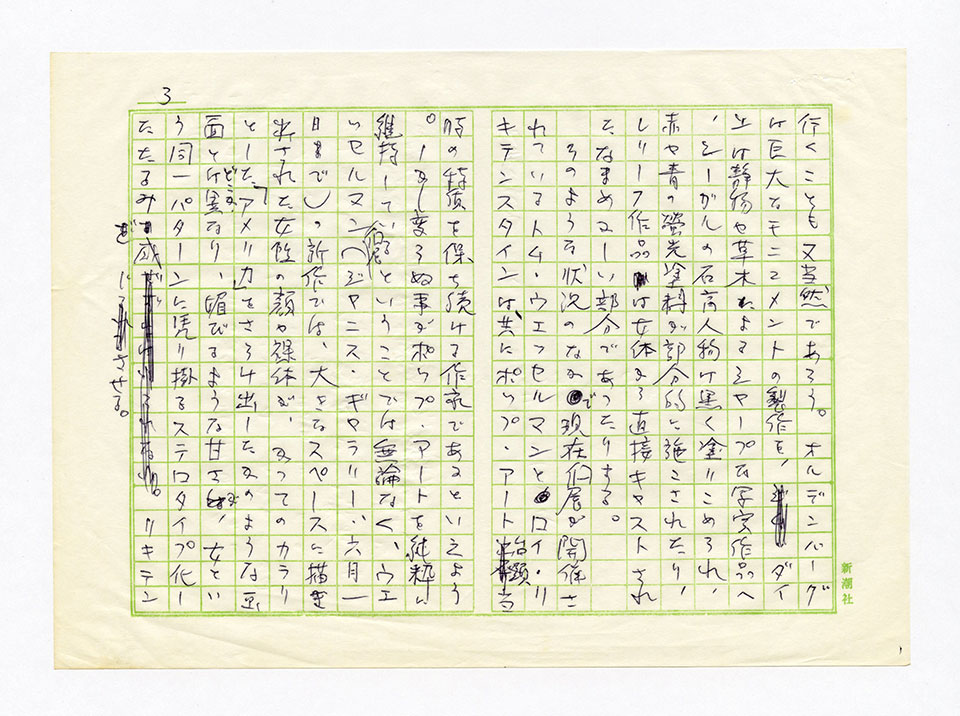 3
行くことも又当然であろう。オルデンバーグ
は巨大なモニュメントの製作を、ダイ
は静物や草木によるシャープな写実作品へ
、シーガルの石膏人物は黒く塗りこめられ、
赤や青の螢光塗料が部分的に施こされたり、
レリーフ作品は女体から直接キャストされ
たなまめかしい部分であったりする。
そのような状況のなかで現在個展が開催さ
れているトム・ウェッセルマンとロイ・リ
キテンスタインは共にポップ・アート当
時の特質を保ち続ける作家であるといえよう
。しかし変らぬ事がポップ・アートを純粋に
維持しているということでは無論なく、ウェ
ッセルマン個展(シドニー・ジャニス・ギャラリー、六月一
日まで)の新作では、大きなスペースに描き
出された女性の顔や裸体が、かつてのカラリ
とした「アメリカ」をさらけ出したかのような画
面とはどこか異なり、媚びるような甘さが、女とい
う同一パターンに凭り掛るステロタイプ化し
たたるみを感じさせる。リキテン
新潮社